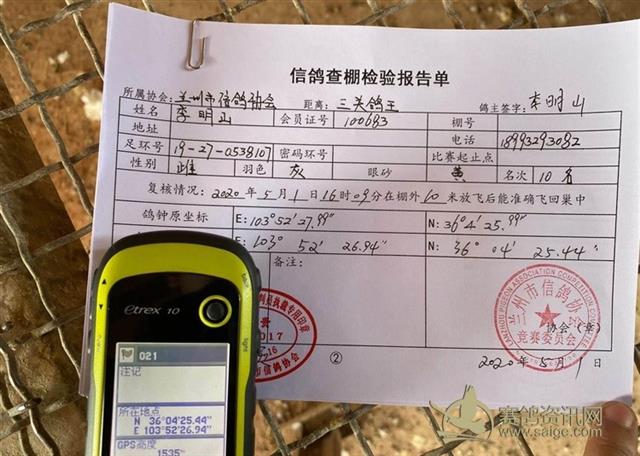 信鸽查棚检验报告单
所属协会: 兰州市信鸽协会 距离: 三关鸽王 鸽主签字: 李明山
姓名 李明山 会员证号 100683 棚号
地址 电话 18993293082
足环号 19-27-0538107 密码环号 比赛起止点
性别 雌 羽色 灰 眼砂 黄 名次 10名
复核情况: 2020年5月1日16时09分在棚外60米放飞后能准确飞回巢中
鸽钟原坐标 E: 103°52'27.99" N: 36°4'25.99"
E: 103° 52' 26.94" N: 36° 04' 25.44"
备注:
兰州市信鸽协会
竞赛委员会
LANZHOU PIGEON ASSOCIATION COMPETITION
裁专用印章
017
16
市信鸽协会
协会(章)
②
2020年5月1日
etrex 10
light
021
注记
所在地点
N 36°04'25.44"
E 103°52'26.94"
GPS高度
1535
赛鸽资讯网
www.saige.com